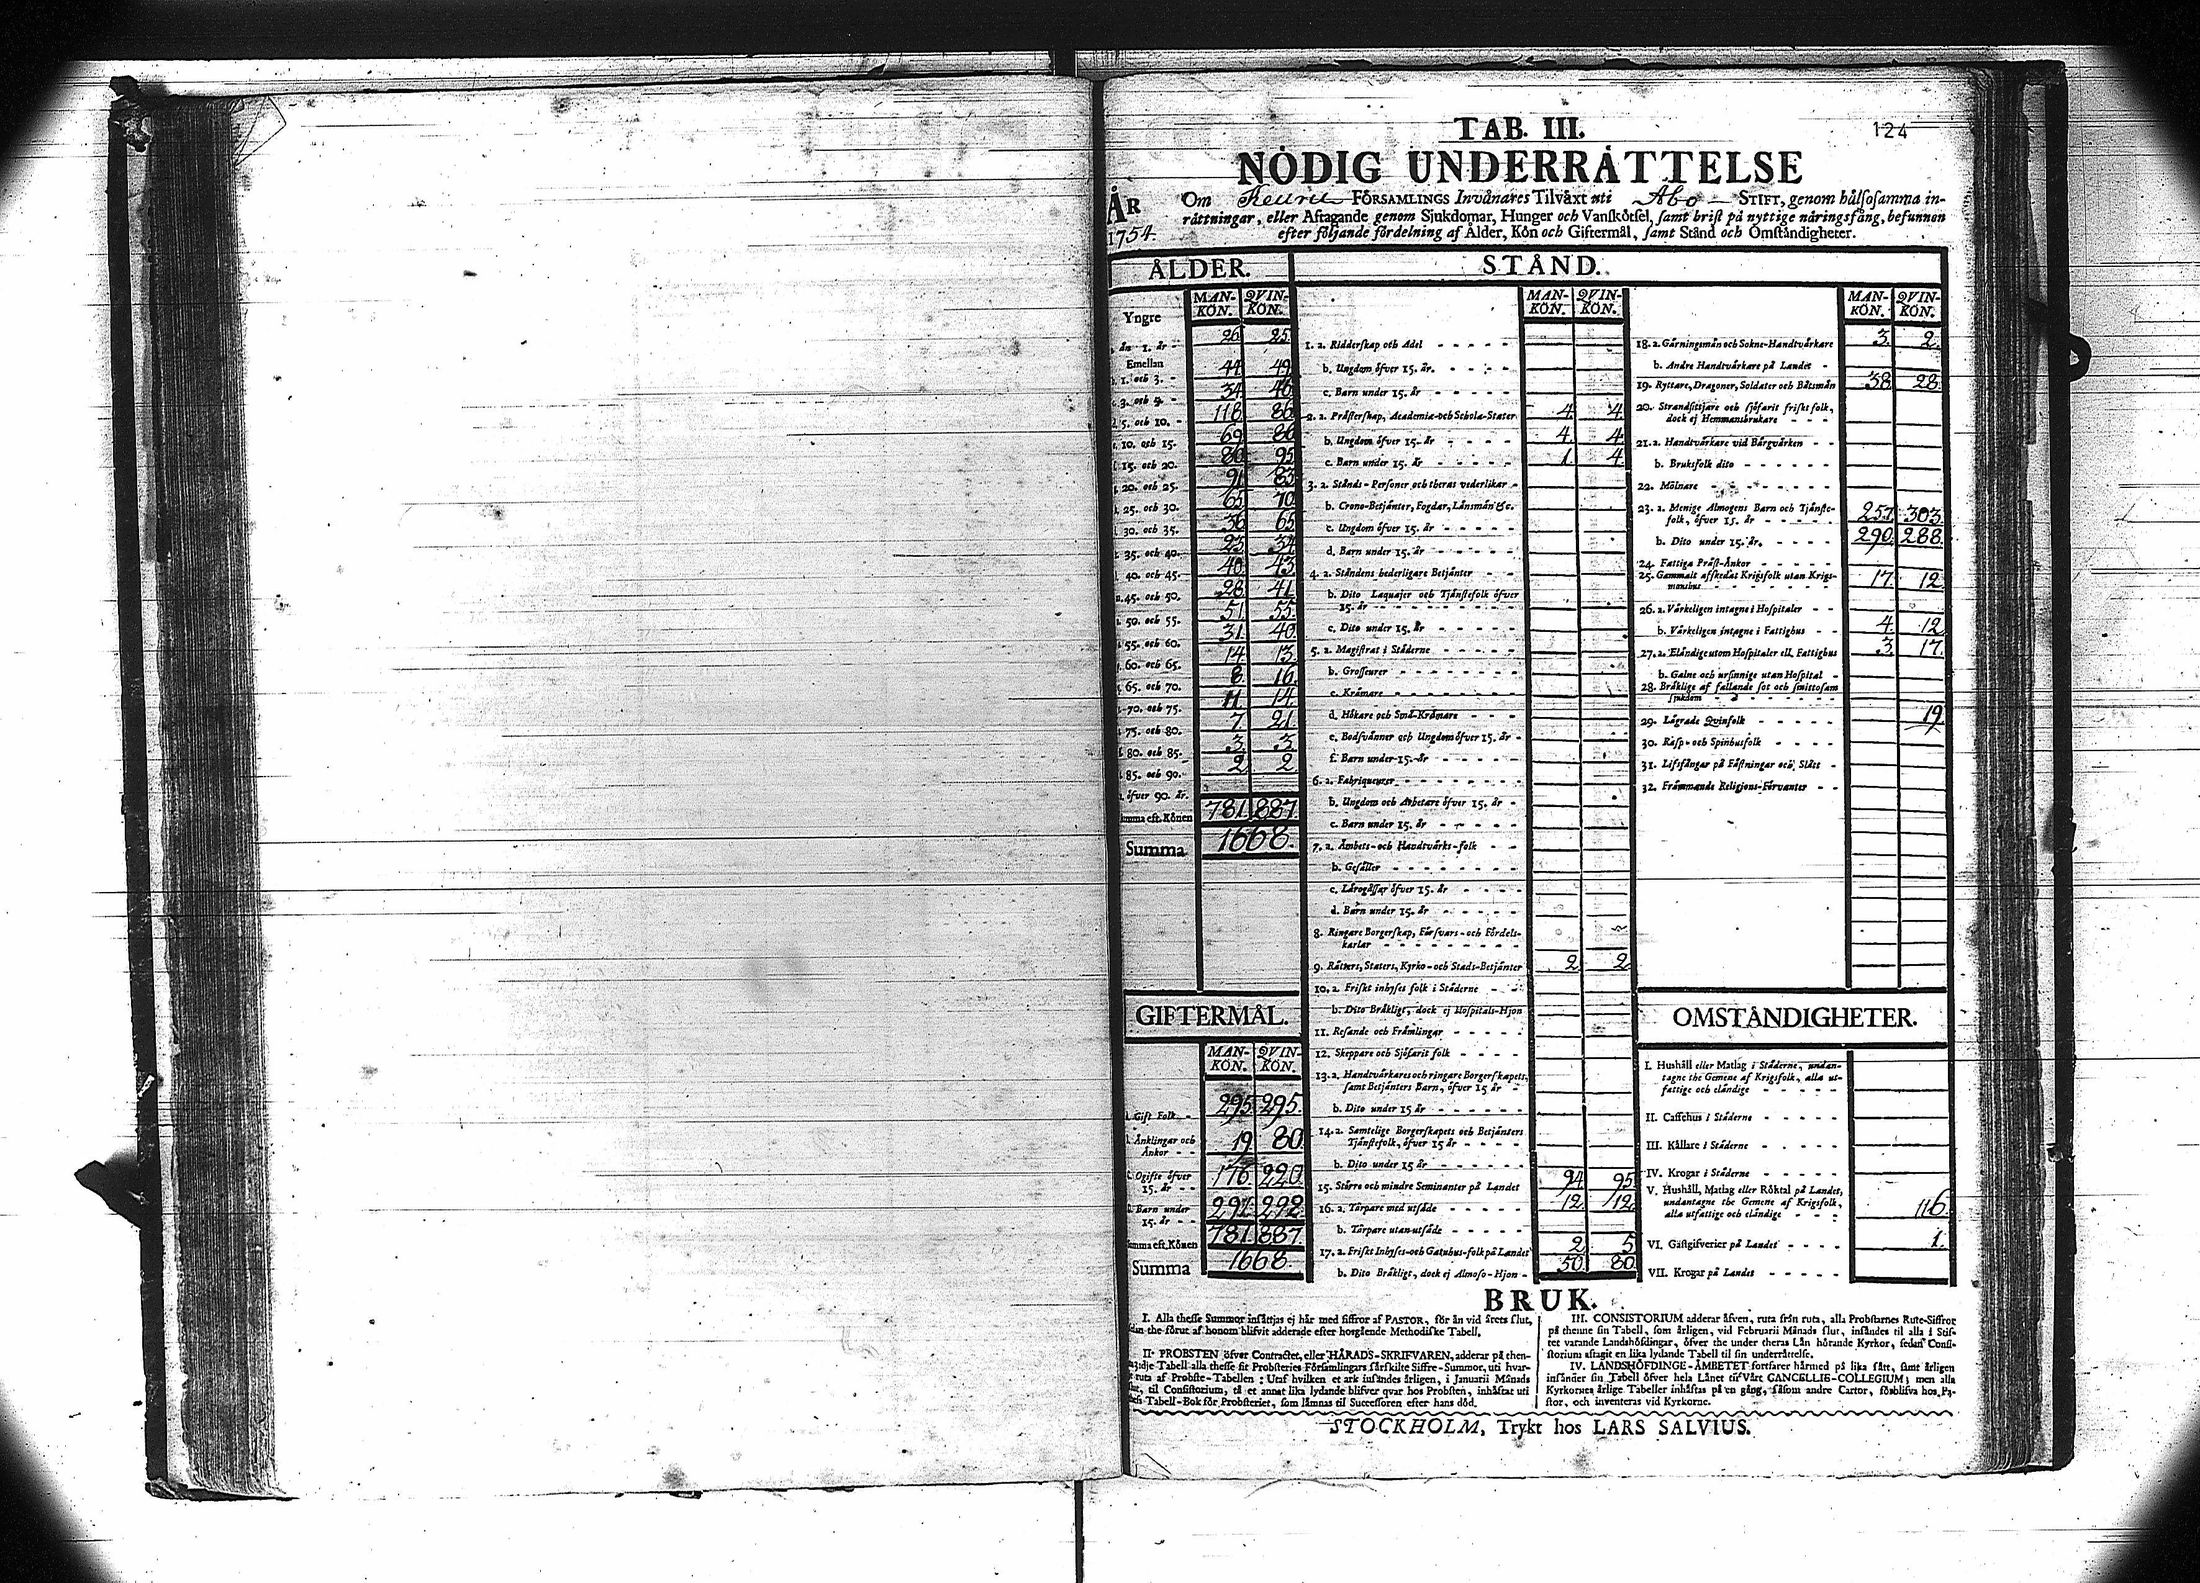 124
TAB. III.
NÖDIG UNDERRÄTTELSE
ÅR 1754.
Om Keuru FÖRSAMLINGS Invånares Tilväxt uti Åbo STIFT, genom hälsosamma in-
rättningar, eller Aftagande genom Sjukdomar, Hunger och Vanskötsel, samt brist på nyttige näringsfång, befunnen
efter följande fördelning af Ålder, Kön och Giftermål, samt Stånd och Omständigheter.
ÅLDER.
MAN-KÖN. QVIN-KÖN.
Yngre
än 1. år - 26 25
Emellan
1. och 3. - 44 49
3. och 5. - 34 46
5. och 10. - 118 86
10. och 15. 69 86
15. och 20. 80 95
20. och 25. 91 83
25. och 30. 65 70
30. och 35. 36 65
35. och 40. 23 34
40. och 45. 40 43
45. och 50. 28 41
50. och 55. 51 55
55. och 60. 31 40
60. och 65. 14 13
65. och 70. 8 16
70. och 75. 11 14
75. och 80. 7 21
80. och 85. 3 3
85. och 90. 2 2
öfver 90. år.
Summa eft. Könen 781. 887.
Summa 1668.
GIFTERMÅL.
MAN-KÖN. QVIN-KÖN.
Gift Folk - 295 295.
Änklingar och Änkor - - 19 80
Ogifte öfver 15. år - - 176 220
Barn under 15. år - - 291 292
Summa eft. Könen 781. 887.
Summa 1668.
STÅND.
MAN-KÖN. QVIN-KÖN.
1. a. Ridderskap och Adel
b. Ungdom öfver 15. år.
c. Barn under 15. år
2. a. Prästerskap, Academiæ- och Scholæ-Stater 4. 4.
b. Ungdom öfver 15. år 4. 4.
c. Barn under 15. år 1. 4.
3. a. Stånds-Personer och theras vederlikar
b. Crono-Betjänter, Fogdar, Länsmän &c.
c. Ungdom öfver 15. år
d. Barn under 15. år
4. a. Ståndens hederligare Betjänter
b. Dito Laquajer och Tjänstefolk öfver
15. år
c. Dito under 15. år
5. a. Magistrat i Städerne
b. Grosseurer
c. Krämare
d. Hökare och Små-Krämare
e. Bodsvänner och Ungdom öfver 15. år
f. Barn under 15. år
6. a. Fabriqueurer
b. Ungdom och Arbetare öfver 15. år
c. Barn under 15. år
7. a. Ämbets- och Handtvärks-folk
b. Gesäller
c. Lärogåssar öfver 15. år
d. Barn under 15. år
8. Ringare Borgerskap, Försvars- och Fördels-
karlar
9. Rätters, Staters, Kyrko- och Stads-Betjänter 2 2
10. a. Friskt inhyses folk i Städerne
b. Dito Bräkligt, dock ej Hospitals-Hjon
11. Resande och Främlingar
12. Skeppare och Sjöfarit folk
13. a. Handtvärkares och ringare Borgerskapets,
samt Betjänters Barn, öfver 15 år
b. Dito under 15 år
14. a. Samtelige Borgerskapets och Betjänters
Tjänstefolk, öfver 15 år
b. Dito under 15 år
15. Större och mindre Seminanter på Landet 94 95
16. a. Torpare med utsäde 12. 12.
b. Torpare utan utsäde
17. a. Friskt Inhyses- och Gatuhus-folk på Landet 2 5
b. Dito Bräkligt, dock ej Almoso-Hjon 50. 80.
MAN-KÖN. QVIN-KÖN.
18. a. Gärningsmän och Sokne-Handtvärkare 3. 2.
b. Andre Handtvärkare på Landet
19. Ryttare, Dragoner, Soldater och Båtsmän 38 28
20. Strandsittjare och sjöfarit friskt folk,
dock ej Hemmansbrukare
21. a. Handtvärkare vid Bärgvärken
b. Bruksfolk dito
22. Mölnare
23. a. Menige Almogens Barn och Tjänste-
folk, öfver 15. år 257. 303.
b. Dito under 15. år. 290. 288.
24. Fattiga Präst-Änkor
25. Gammalt affskedat Krigsfolk utan Krigs-
manshus 17. 12
26. a. Värkeligen intagne i Hospitaler
b. Värkeligen intagne i Fattighus 4. 12
27. a. Eländige utom Hospitaler ell. Fattighus 3. 17.
b. Galne och ursinnige utan Hospital
28. Bräklige af fallande sot och smittosam
sjukdom
29. Lägrade Qvinfolk 19
30. Rasp- och Spinhusfolk
31. Lifsfångar på Fästningar och Slått
32. Främmande Religions-Förvanter
OMSTÄNDIGHETER.
I. Hushåll eller Matlag i Städerne, undan-
tagne the Gemene af Krigsfolk, alla ut-
fattige och eländige
II. Caffehus i Städerne
III. Källare i Städerne
IV. Krogar i Städerne
V. Hushåll, Matlag eller Röktal på Landet,
undantagne the Gemene af Krigsfolk,
alla utfattige och eländige 116.
VI. Gästgifverier på Landet 1.
VII. Krogar på Landet
BRUK.
I. Alla thesse Summor insättjas ej här med siffror af PASTOR, för än vid årets slut,
sedan the förut af honom blifvit adderade efter horgående Methodiske Tabell.
II. PROBSTEN öfver Contractet, eller HÄRADS-SKRIFVAREN, adderar på then-
na tridje Tabell alla thesse sit Probsteries Församlingars särskilte Siffre-Summor, uti hvar-
t ruta af Probste-Tabellen: Utaf hvilken et ark insändes årligen, i Januarii Månads
slut, til Consistorium, tå et annat lika lydande blifver qvar hos Probsten, inhäftat uti
Tabell-Bok för Probsteriet, som lämnas til Successoren efter hans död.
III. CONSISTORIUM adderar äfven, ruta från ruta, alla Probstarnes Rute-Siffror
på thenne sin Tabell, som årligen, vid Februarii Månads slut, insändes til alla i Stif-
tet varande Landshöfdingar, öfver the under theras Län hörande Kyrkor, sedan Consi-
storium aftagit en lika lydande Tabell til sin underrättelse.
IV. LANDSHÖFDINGE-ÄMBETET fortfarer härmed på lika sätt, samt årligen
insänder sin Tabell öfver hela Länet til Vårt CANCELLIE-COLLEGIUM; men alla
Kyrkornes årlige Tabeller inhäftas på en gång, såsom andre Cartor, förblifva hos Pa-
stor, och inventeras vid Kyrkorne.
STOCKHOLM, Trykt hos LARS SALVIUS.